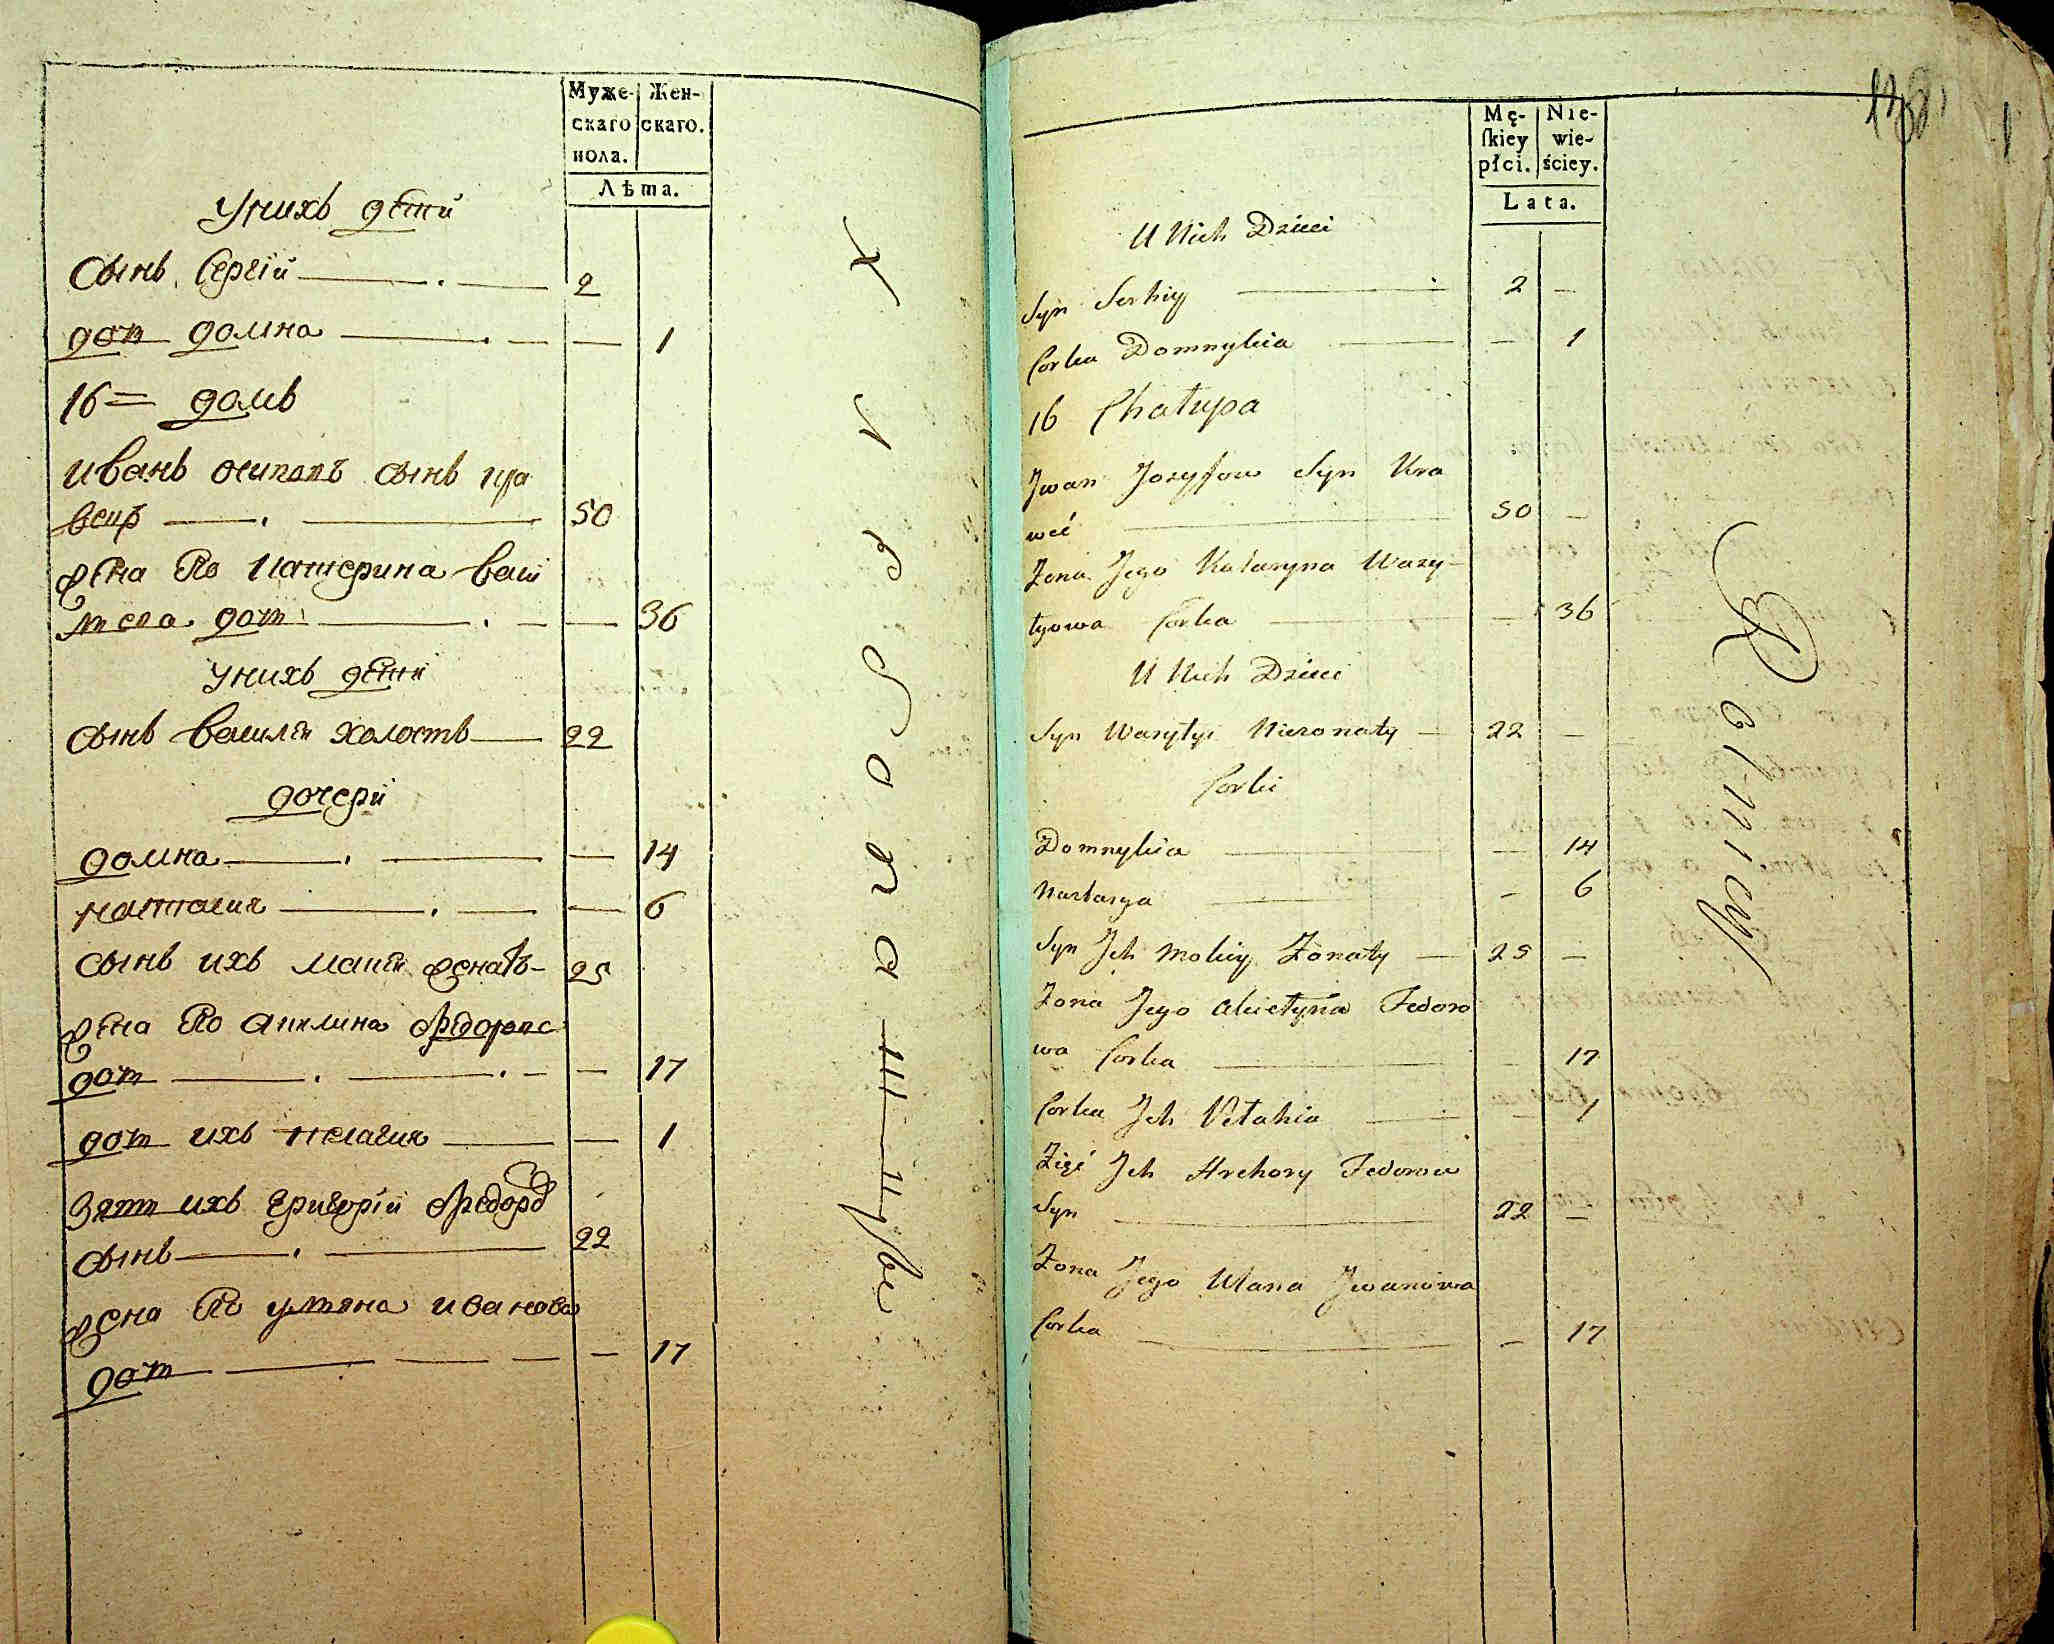 Муже-
скаго
пола.
Жен-
скаго.
Лѣта.
У нихъ дѣти
Сынъ Сергій 2
доч домна 1
16 = домъ
иванъ осиповъ сынъ кра
вецъ 50
жена Его катерина васи
лева доч 36
У нихъ дѣти
сынъ василій холостъ 22
дочери
домна 14
настасия 6
сынъ ихъ мокій женатъ 25
жена Его акилина федорова
доч 17
доч ихъ пелагия 1
Зят ихъ григорій федоровъ
сынъ 22
жена Его ульяна иванова
доч 17
Mę-
skiey
płci.
Nie-
wie-
ściey.
Lata.
U Nich Dzieci
Syn Serhiy 2 —
Corka Domnykia — 1
16 Chałupa
Jwan Jozyfow Syn Kra
weć 50 —
Żona Jego Kataryna Wasy-
tyowa Corka — 36
U Nich Dzieci
Syn Wasytyi Nieżonaty — 22 —
Corki
Domnykia — 14
Nastasya — 6
Syn Jch Mokiy Żonaty — 25 —
Żona Jego Akietyna Fedoro
wa Corka — 17
Corka Jch Petahia — 1
Zięć Jch Hrehory Fedorow
Syn 22 —
Żona Jego Ulana Jwanowa
Corka — 17
Rolniey